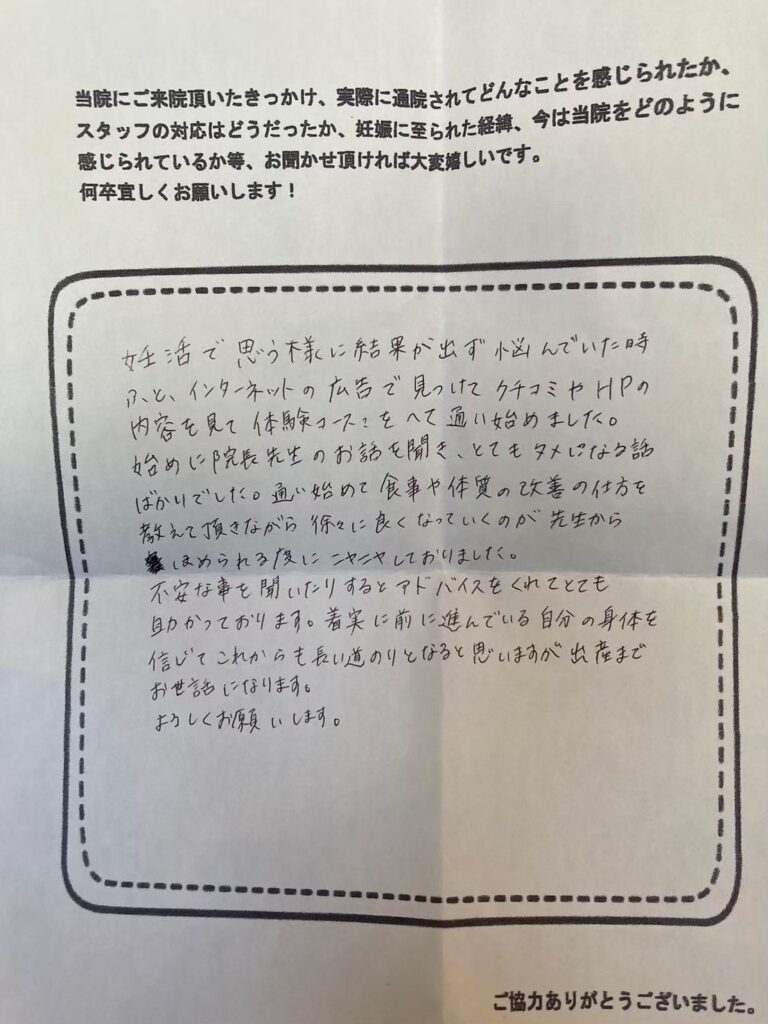 当院にご来院頂いたきっかけ、実際に通院されてどんなことを感じられたか、
スタッフの対応はどうだったか、妊娠に至られた経緯、今は当院をどのように
感じられているか等、お聞かせ頂ければ大変嬉しいです。
何卒宜しくお願いします！
妊活で思う様に結果が出ず悩んでいた時
ふと、インターネットの広告で見つけてクチコミやHPの
内容を見て体験コースをへて通い始めました。
始めに院長先生のお話を聞き、とてもタメになる話
ばかりでした。通い始めて食事や体質の改善の仕方を
教えて頂きながら徐々に良くなっていくのが先生から
ほめられる度にニヤニヤしておりました。
不安な事を聞いたりするとアドバイスをくれてとても
助かっております。着実に前に進んでいる自分の身体を
信じてこれからも長い道のりとなると思いますが出産まで
お世話になります。
よろしくお願いします。
ご協力ありがとうございました。